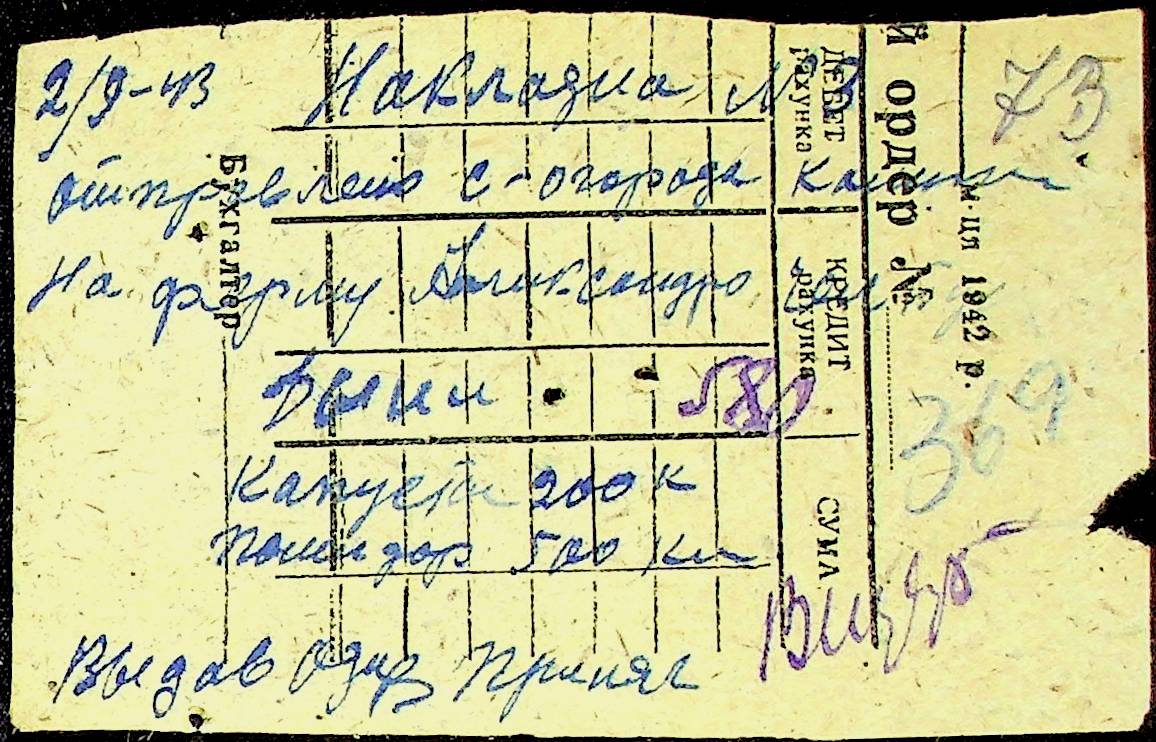 2/9-43 Накладна №3 73
отправлено с-огорода
на ферму Александро
Дыни 580
Капуста 200 к
помидор 500 кил
Выдав Принял
й ордер №
м-ця 1942 р.
ДЕБЕТ рахунка
КРЕДИТ рахунка
СУМА
Бухгалтер
369